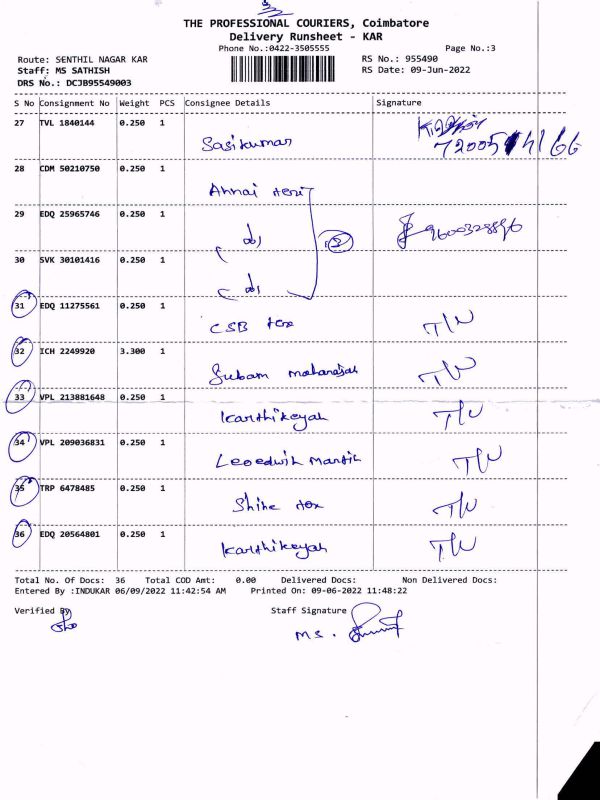 THE PROFESSIONAL COURIERS, Coimbatore
Delivery Runsheet - KAR
Phone No.:0422-3505555
Page No.:3
Route: SENTHIL NAGAR KAR
RS No.: 955490
Staff: MS SATHISH
RS Date: 09-Jun-2022
DRS No.: DCJB95549003
S No Consignment No Weight PCS Consignee Details Signature
27 TVL 1840144 0.250 1
Sasikumar
28 CDM 50210750 0.250 1
Annai
29 EDQ 25965746 0.250 1
9600328896
30 SVK 30101416 0.250 1
31 EDQ 11275561 0.250 1
CSB tex T/N
32 ICH 2249920 3.300 1
Subam maharajah T/N
33 VPL 213881648 0.250 1
Karthikeyah T/N
34 VPL 209036831 0.250 1
Leoedwin T/N
35 TRP 6478485 0.250 1
Shine tex T/N
36 EDQ 20564801 0.250 1
Karthikeyah T/N
Total No. Of Docs: 36 Total COD Amt: 0.00 Delivered Docs: Non Delivered Docs:
Entered By :INDUKAR 06/09/2022 11:42:54 AM Printed On: 09-06-2022 11:48:22
Verified By Staff Signature
M S .